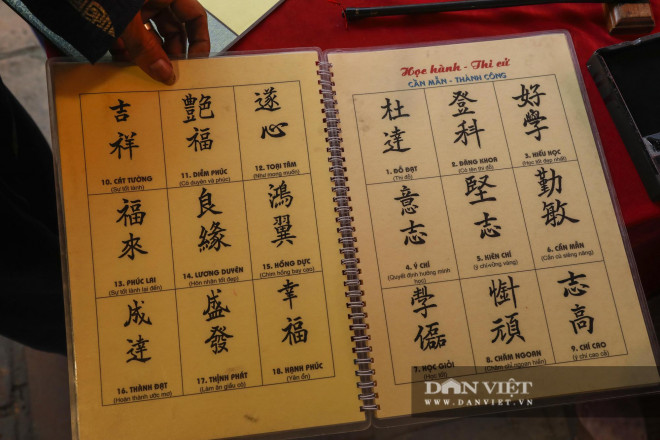 吉祥
10. CÁT TƯỜNG
(Sự tốt lành)
艷福
11. DIỄM PHÚC
(Có duyên và phúc)
遂心
12. TOẠI TÂM
(Như mong muốn)
福來
13. PHÚC LAI
(Sự tốt lành lại đến)
良緣
14. LƯƠNG DUYÊN
(Hôn nhân tốt đẹp)
鴻翼
15. HỒNG DỰC
(Chim hồng bay cao)
成達
16. THÀNH ĐẠT
(Hoàn thành ước mơ)
盛發
17. THỊNH PHÁT
(Làm ăn giầu có)
幸福
18. HẠNH PHÚC
(Yên ổn)
Học hành - Thi cử
CẦN MẪN - THÀNH CÔNG
杜達
1. ĐỖ ĐẠT
(Thi đỗ)
登科
2. ĐĂNG KHOA
(Có tên thi đỗ)
好學
3. HIẾU HỌC
(Học tốt đẹp nhất)
意志
4. Ý CHÍ
(Quyết định hướng mình học)
堅志
5. KIÊN CHÍ
(ý chí vững vàng)
勤敏
6. CẦN MẪN
(Cần cù siêng năng)
7. HỌC GIỎI
(Học tốt)
8. CHĂM NGOAN
(Chăm chỉ ngoan hiền)
志高
9. CHÍ CAO
(ý chí cao cả)
DÂN VIỆT
WWW.DANVIET.VN